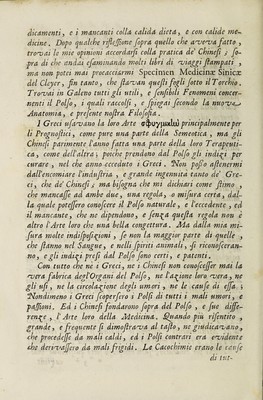 dicamenti, e i mancanti colla calida dieta, e con calide me-
dicine. Dopo qualche riflessione sopra quello che aveva fatto,
trovai le mie opinioni accordarsi colla pratica de' Chinesi, so-
pra di che andai esaminando molti libri di viaggi stampati,
ma non potei mai procacciarmi Specimen Medicinæ Sinicæ
del Cleyer, sin tanto, che stavan questi fogli sotto il Torchio.
Trovai in Galeno tutti gli utili, e sensibili Fenomeni concer-
nenti il Polso, i quali raccolsi, e spiegai secondo la nuova
Anatomia, e presente nostra Filosofia.
I Greci usavano la loro Arte σφυγμικὴ principalmente per
li Prognostici, come pure una parte della Semeotica, ma gli
Chinesi parimente l'anno fatta una parte della loro Terapeuti-
ca, come dell'altra, poichè prendono dal Polso gli indizi per
curare, nel che anno ecceduto i Greci. Non posso astenermi
dall'encomiare l'industria, e grande ingenuità tanto de' Gre-
ci, che de' Chinesi, ma bisogna che mi dichiari come stimo,
che mancasse ad ambe due, una regola, o misura certa, dal-
la quale potessero conoscere il Polso naturale, e l'eccedente, ed
il mancante, che ne dipendono, e senza questa regola non è
altro l'Arte loro che una bella congettura. Ma dalla mia mi-
sura molte indisposizioni, se non la maggior parte di quelle,
che stanno nel Sangue, e nelli spiriti animali, si riconosceran-
no, e gli indizi presi dal Polso sono certi, e patenti.
Con tutto che nè i Greci, ne i Chinesi non conoscesser mai la
vera fabrica degl'Organi del Polso, ne l'azione loro vera, ne
gli usi, ne la circolazione degli umori, ne le cause di essa;
Nondimeno i Greci scopersero i Polsi di tutti i mali umori, e
passioni. Ed i Chinesi fondarono sopra del Polso, e sue diffe-
renze, l'Arte loro della Medicina. Quando più risentito,
grande, e frequente si dimostrava al tasto, ne giudicavano,
che procedesse da mali caldi, ed i Polsi contrari era evidente
che derivassero da mali frigidi. Le Cacochimie erano le cause
di tut-